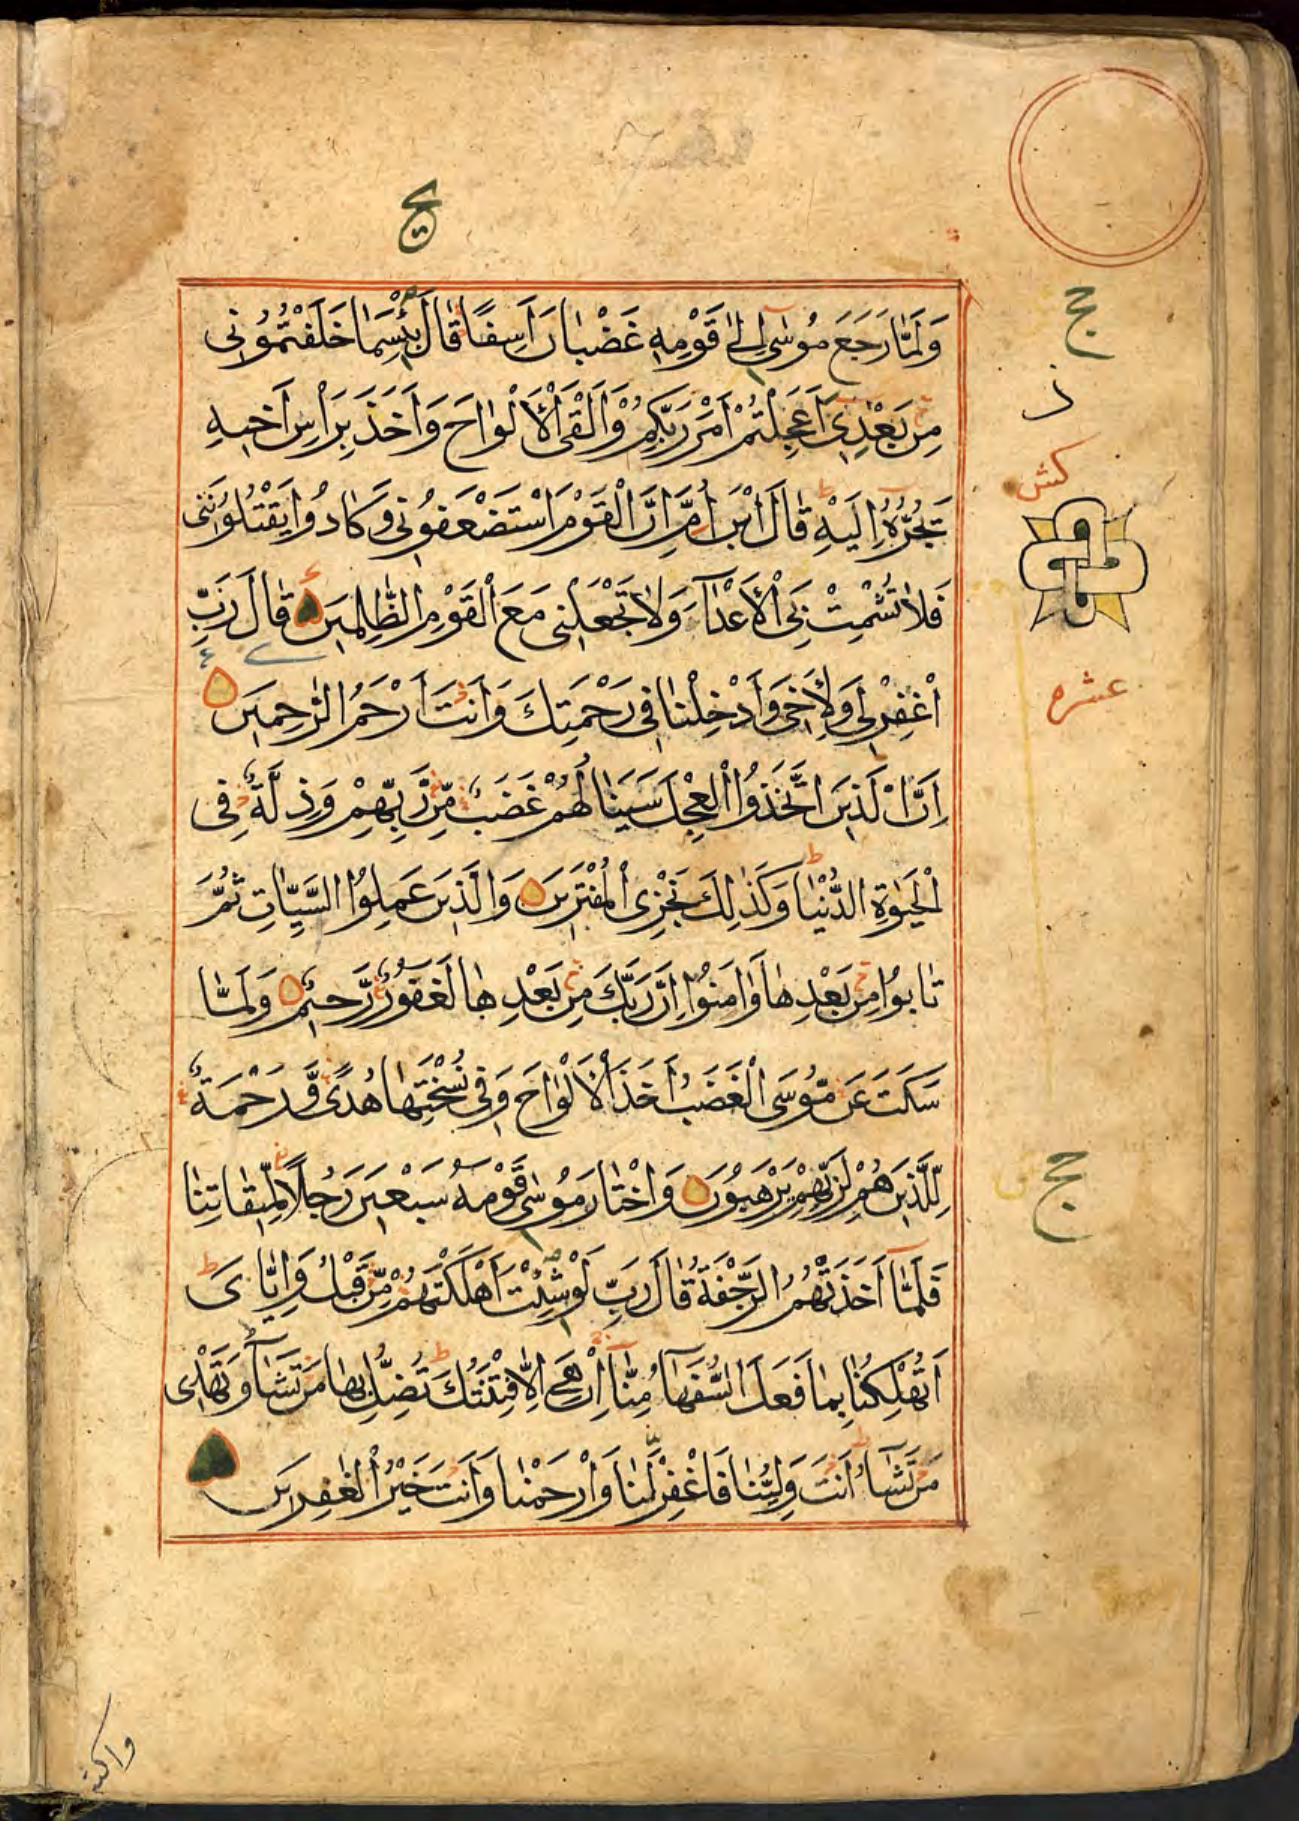 وَلَمَّا رَجَعَ مُوسٰى اِلٰى قَوْمِهٖ غَضْبَانَ اَسِفًا قَالَ بِئْسَمَا خَلَفْتُمُوْنِى
مِنْ بَعْدِى اَعَجِلْتُمْ اَمْرَ رَبِّكُمْ وَاَلْقَى الْاَلْوَاحَ وَاَخَذَ بِرَاْسِ اَخِيْهِ
يَجُرُّهٗ اِلَيْهِ قَالَ ابْنَ اُمَّ اِنَّ الْقَوْمَ اسْتَضْعَفُوْنِى وَكَادُوْا يَقْتُلُوْنَنِى
فَلَا تُشْمِتْ بِىَ الْاَعْدَآءَ وَلَا تَجْعَلْنِى مَعَ الْقَوْمِ الظّٰلِمِيْنَ قَالَ رَبِّ
اغْفِرْلِى وَلِاَخِى وَاَدْخِلْنَا فِى رَحْمَتِكَ وَاَنْتَ اَرْحَمُ الرّٰحِمِيْنَ
اِنَّ الَّذِيْنَ اتَّخَذُوا الْعِجْلَ سَيَنَالُهُمْ غَضَبٌ مِّنْ رَّبِّهِمْ وَذِلَّةٌ فِى
الْحَيٰوةِ الدُّنْيَا وَكَذٰلِكَ نَجْزِى الْمُفْتَرِيْنَ وَالَّذِيْنَ عَمِلُوا السَّيِّاٰتِ ثُمَّ
تَابُوْا مِنْ بَعْدِهَا وَاٰمَنُوْا اِنَّ رَبَّكَ مِنْ بَعْدِهَا لَغَفُوْرٌ رَّحِيْمٌ وَلَمَّا
سَكَتَ عَنْ مُّوْسَى الْغَضَبُ اَخَذَ الْاَلْوَاحَ وَفِى نُسْخَتِهَا هُدًى وَّرَحْمَةٌ
لِّلَّذِيْنَ هُمْ لِرَبِّهِمْ يَرْهَبُوْنَ وَاخْتَارَ مُوْسٰى قَوْمَهٗ سَبْعِيْنَ رَجُلًا لِّمِيْقَاتِنَا
فَلَمَّآ اَخَذَتْهُمُ الرَّجْفَةُ قَالَ رَبِّ لَوْ شِئْتَ اَهْلَكْتَهُمْ مِّنْ قَبْلُ وَاِيَّاىَ
اَتُهْلِكُنَا بِمَا فَعَلَ السُّفَهَآءُ مِنَّا اِنْ هِىَ اِلَّا فِتْنَتُكَ تُضِلُّ بِهَا مَنْ تَشَآءُ وَتَهْدِى
مَنْ تَشَآءُ اَنْتَ وَلِيُّنَا فَاغْفِرْ لَنَا وَارْحَمْنَا وَاَنْتَ خَيْرُ الْغٰفِرِيْنَ
كش
عشره
واكتب